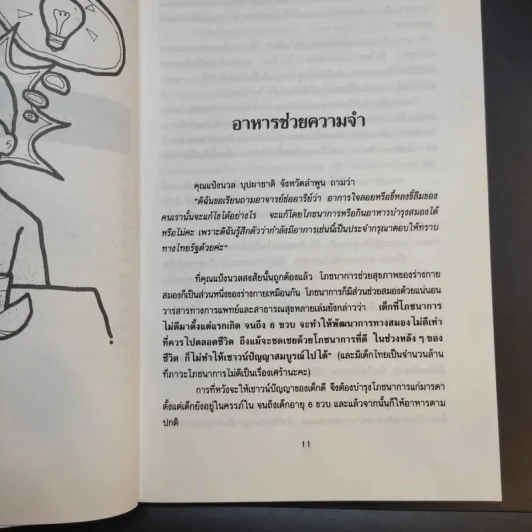 อาหารช่วยความจำ
คุณแป้งนวล บุปผาชาติ จังหวัดลำพูน ถามว่า
"ดิฉันขอเรียนถามอาจารย์ช่ออารีย์ว่า อาการใจลอยหรือขี้หลงขี้ลืมของ
คนเรานั้นจะแก้ไขได้อย่างไร จะแก้โดยโภชนาการหรือกินอาหารบำรุงสมองได้
หรือไม่คะ เพราะดิฉันรู้สึกตัวว่ากำลังมีอาการเช่นนี้เป็นประจำกรุณาตอบให้ทราบ
ทางไทยรัฐด้วยค่ะ"
ที่คุณแป้งนวลสงสัยนั้นถูกต้องแล้ว โภชนาการช่วยสุขภาพของร่างกาย
สมองก็เป็นส่วนหนึ่งของร่างกายเหมือนกัน โภชนาการก็มีส่วนช่วยสมองด้วยแน่นอน
วารสารทางการแพทย์และสาธารณสุขหลายเล่มยังกล่าวว่า เด็กที่โภชนาการ
ไม่ดีมาตั้งแต่แรกเกิด จนถึง 6 ขวบ จะทำให้พัฒนาการทางสมองไม่ดีเท่า
ที่ควรไปตลอดชีวิต ถึงแม้จะชดเชยด้วยโภชนาการที่ดี ในช่วงหลัง ๆ ของ
ชีวิต ก็ไม่ทำให้เชาวน์ปัญญาสมบูรณ์ไปได้" (และมีเด็กไทยเป็นจำนวนล้าน
ที่ภาวะโภชนาการไม่ดีเป็นเรื่องเศร้านะคะ)
การที่หวังจะให้เชาวน์ปัญญาของเด็กดี จึงต้องบำรุงโภชนาการแก่มารดา
ตั้งแต่เด็กยังอยู่ในครรภ์ใน จนถึงเด็กอายุ 6 ขวบ และแล้วจากนั้นก็ให้อาหารตาม
ปกติ
11